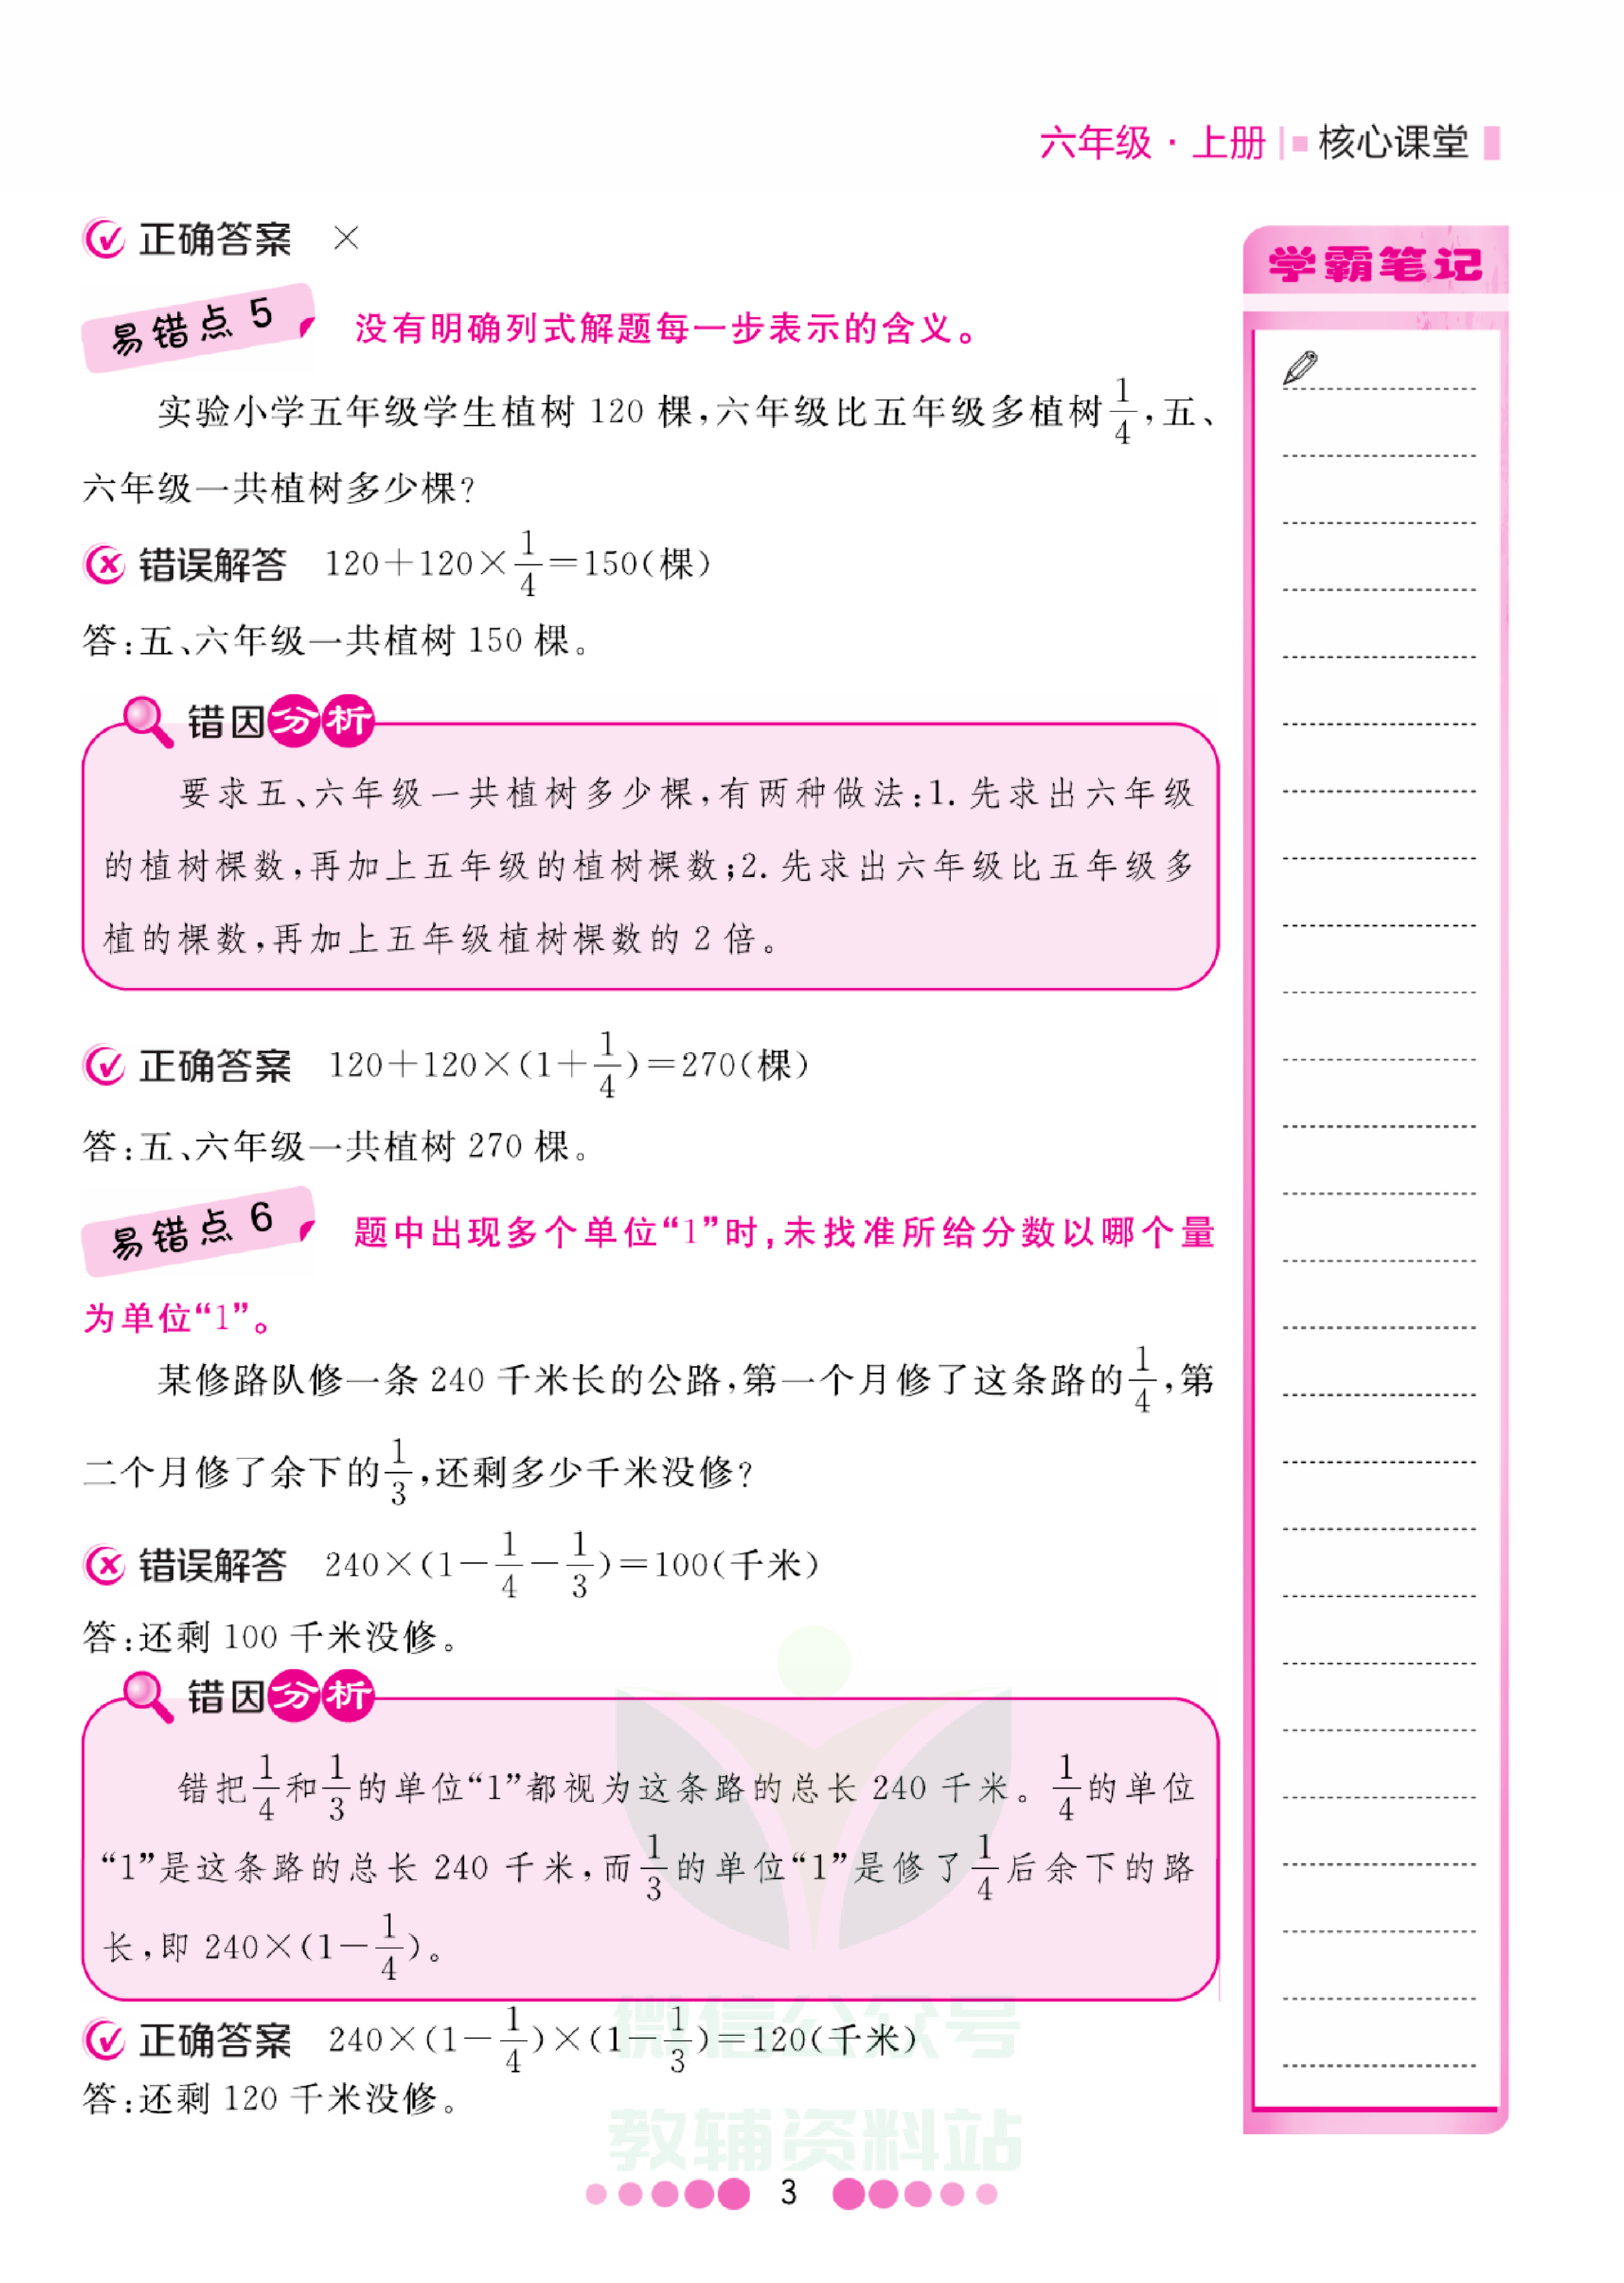 六年级·上册 核心课堂
正确答案 ×
学霸笔记
易错点 5 没有明确列式解题每一步表示的含义。
实验小学五年级学生植树 120 棵,六年级比五年级多植树1/4,五、
六年级一共植树多少棵?
错误解答 120+120×1/4=150(棵)
答:五、六年级一共植树 150 棵。
错因分析
要求五、六年级一共植树多少棵,有两种做法:1. 先求出六年级
的植树棵数,再加上五年级的植树棵数;2. 先求出六年级比五年级多
植的棵数,再加上五年级植树棵数的 2 倍。
正确答案 120+120×(1+1/4)=270(棵)
答:五、六年级一共植树 270 棵。
易错点 6 题中出现多个单位“1”时,未找准所给分数以哪个量
为单位“1”。
某修路队修一条 240 千米长的公路,第一个月修了这条路的1/4,第
二个月修了余下的1/3,还剩多少千米没修?
错误解答 240×(1-1/4-1/3)=100(千米)
答:还剩 100 千米没修。
错因分析
错把1/4和1/3的单位“1”都视为这条路的总长 240 千米。1/4的单位
“1”是这条路的总长 240 千米,而1/3的单位“1”是修了1/4后余下的路
长,即 240×(1-1/4)。
正确答案 240×(1-1/4)×(1-1/3)=120(千米)
答:还剩 120 千米没修。
微信公众号
教辅资料站
3